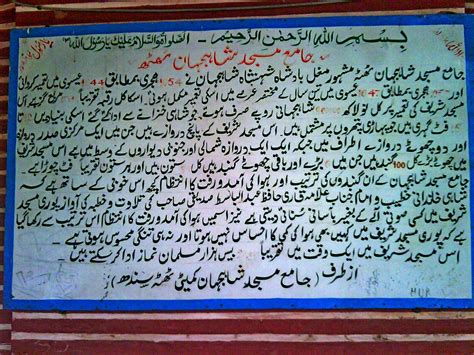 بِسْمِ اللّٰهِ الرَّحْمٰنِ الرَّحِيْمِ - الصلوٰۃ والسلام علیک یا رسول اللہ
جامع مسجد شاہجہان ٹھٹھہ
جامع مسجد شاہجہان ٹھٹھہ مشہور مغل بادشاہ شہنشاہ شاہجہان نے 1054 ہجری بمطابق 1644 عیسوی میں تعمیر کروائی
اور 1057 ہجری بمطابق 1647 عیسوی میں تین سال کے مختصر عرصے میں اسکی تعمیر مکمل ہوئی۔ اسکا کل رقبہ تقریباً
مسجد شریف کی تعمیر پر کل نو لاکھ شاہجہانی روپے خرچ ہوئے جو شاہی خزانے سے ادا کئے گئے
فٹ گہری ہیں جو پہاڑی پتھروں پر مشتمل ہیں۔ اس مسجد شریف کے پانچ دروازے ہیں جن میں ایک مرکزی صدر دروازہ
اور دو چھوٹے دروازے اطراف میں جبکہ ایک ایک دروازہ شمالی اور جنوبی دیواروں کے وسط میں ہے اس مسجد شریف
میں چھوٹے بڑے کل 100 گنبد ہیں جن میں بڑے اور باقی چھوٹے گنبد ہیں کل ستون ہیں اور ہر ستون تقریباً فٹ چوڑا ہے
جامع مسجد شاہجہان کے ان گنبدوں کی ترتیب اور ہوا کی آمد و رفت کا انتظام کچھ اس خوبی کے ساتھ ہے کہ
شاہی خاندانی خطیب و امام جناب علامہ قاری حافظ عبدالباسط صدیقی صاحب کی تلاوت و خطبہ کی آواز پوری مسجد
شریف میں کسی صوتی آلے کے بغیر بآسانی سنائی دیتی ہے نیز اسمیں ہوا کی آمد و رفت کا انتظام اس ترتیب سے رکھا گیا
ہے کہ پوری مسجد شریف میں کہیں بھی ہوا کی کمی کا احساس نہیں ہوتا اور نہ ہی تنگی محسوس ہوتی ہے
اس مسجد شریف میں ایک وقت میں تقریباً بیس ہزار مسلمان نماز ادا کر سکتے ہیں۔
از طرف (جامع مسجد شاہجہان کمیٹی ٹھٹھہ سندھ)